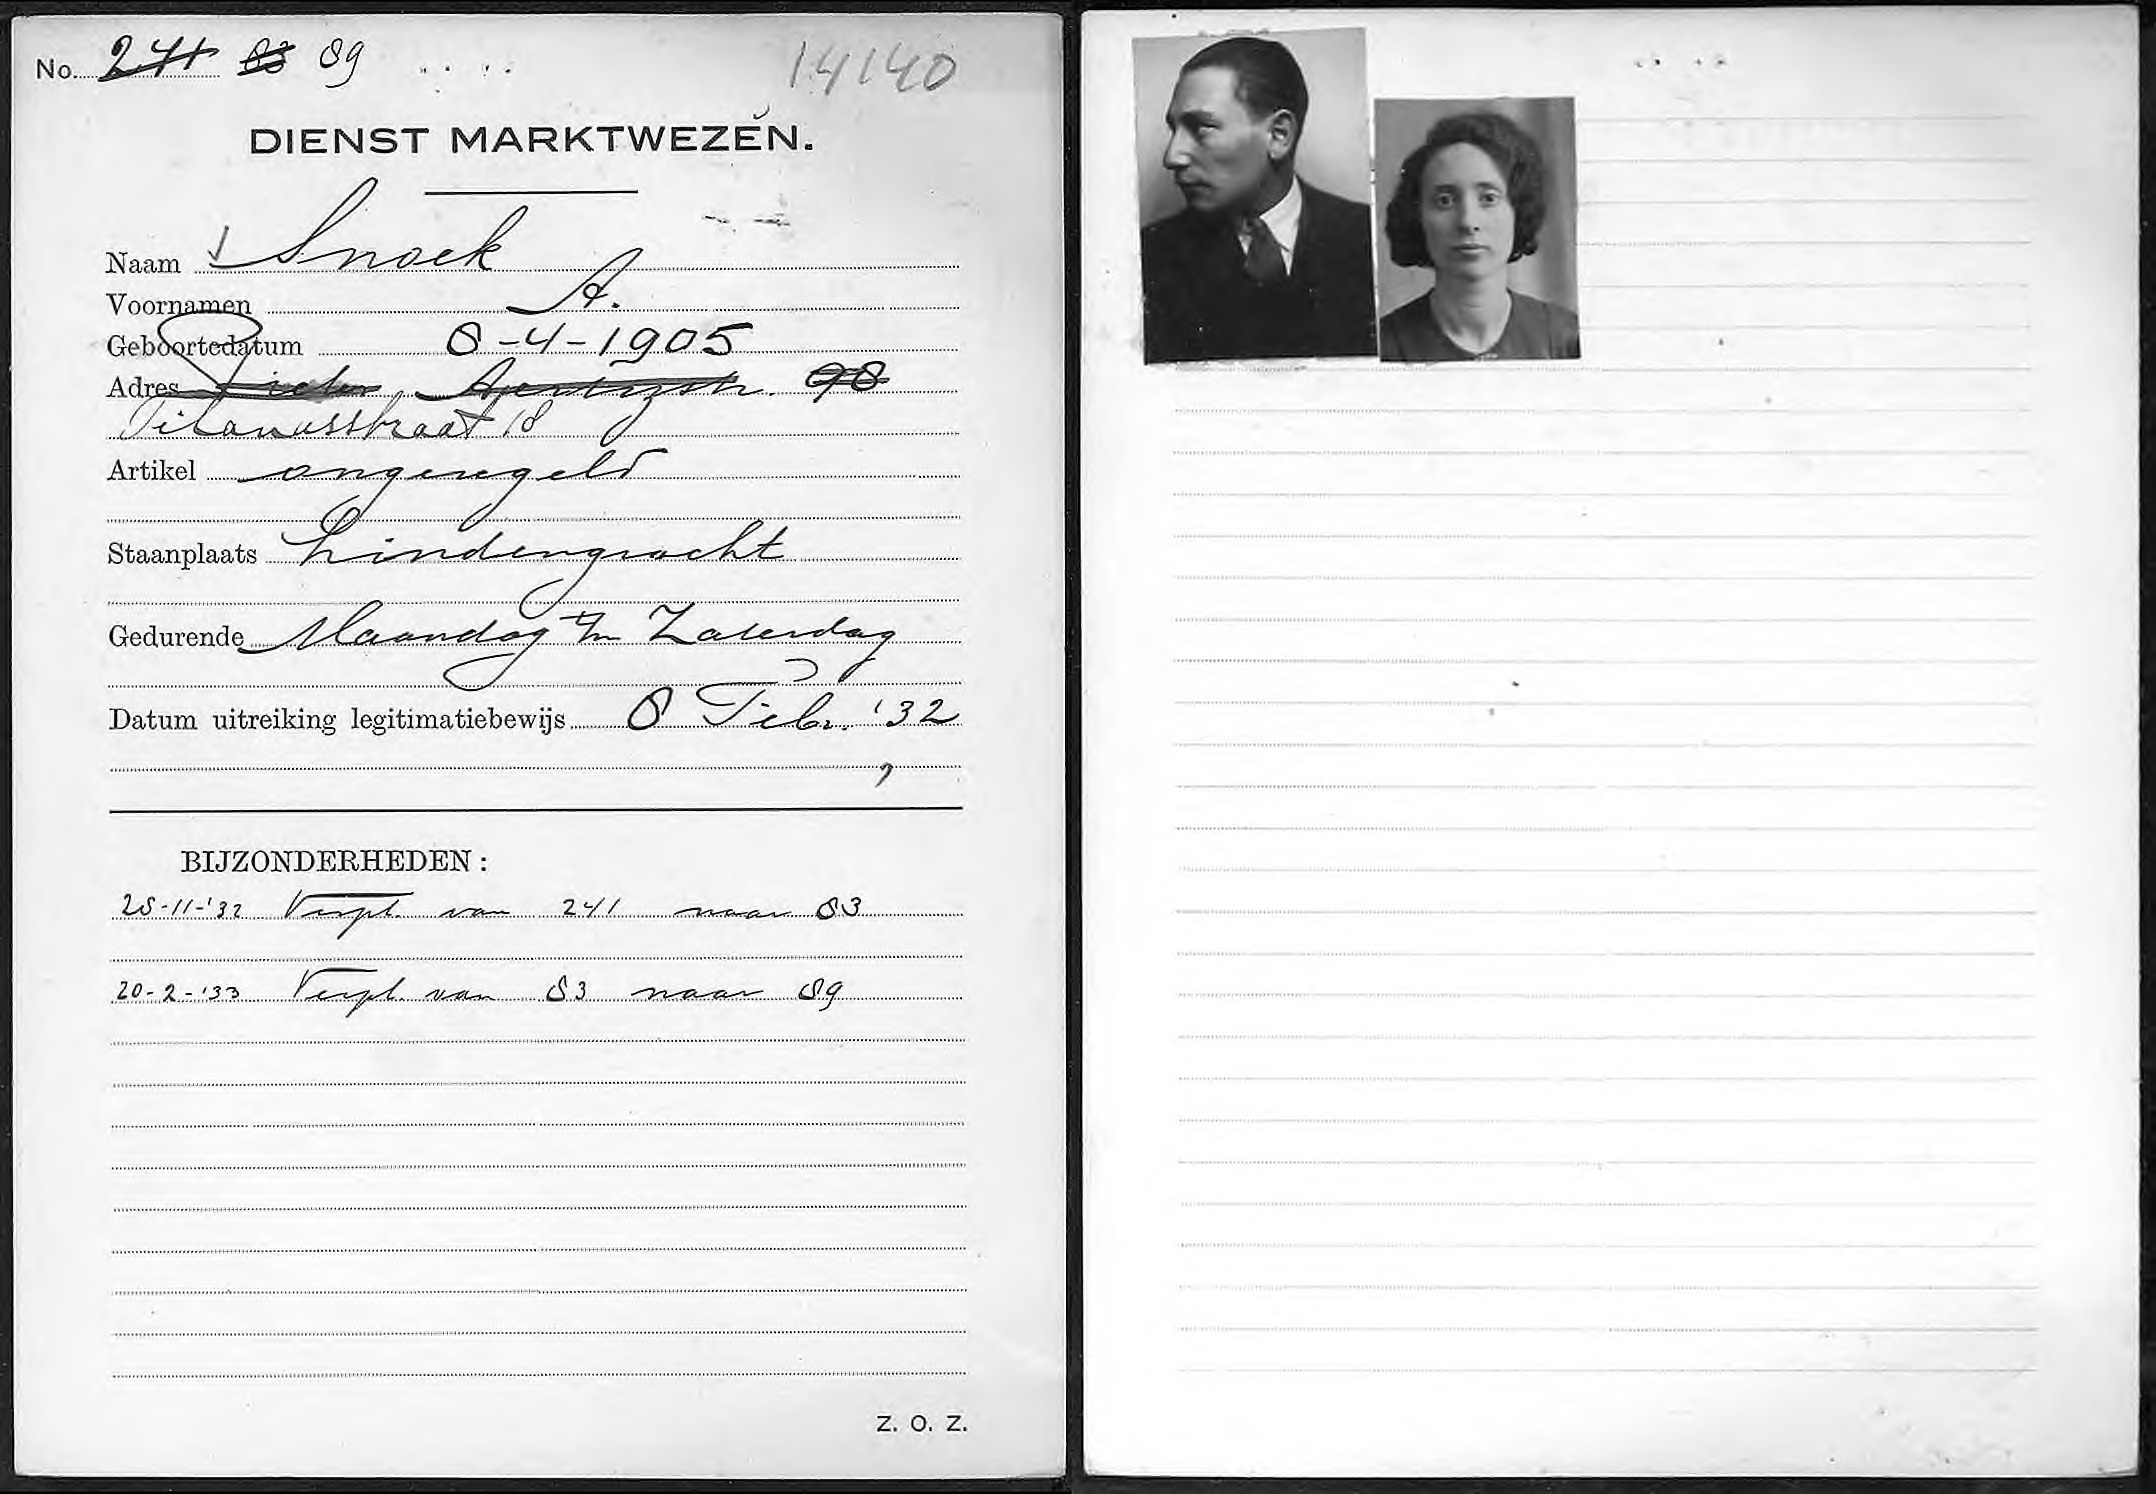 No. 241 83 89 14140
DIENST MARKTWEZEN.
Naam Snoek
Voornamen A.
Geboortedatum 8-4-1905
Adres Pieter Aertszstr. 98
Titanusstraat 18
Artikel ongeregeld
Staanplaats Lindengracht
Gedurende Maandag t/m Zaterdag
Datum uitreiking legitimatiebewijs 8 Febr. '32
BIJZONDERHEDEN:
28-11-'32 Verpl. van 241 naar 83
20-2-'33 Verpl. van 83 naar 89
Z. O. Z.